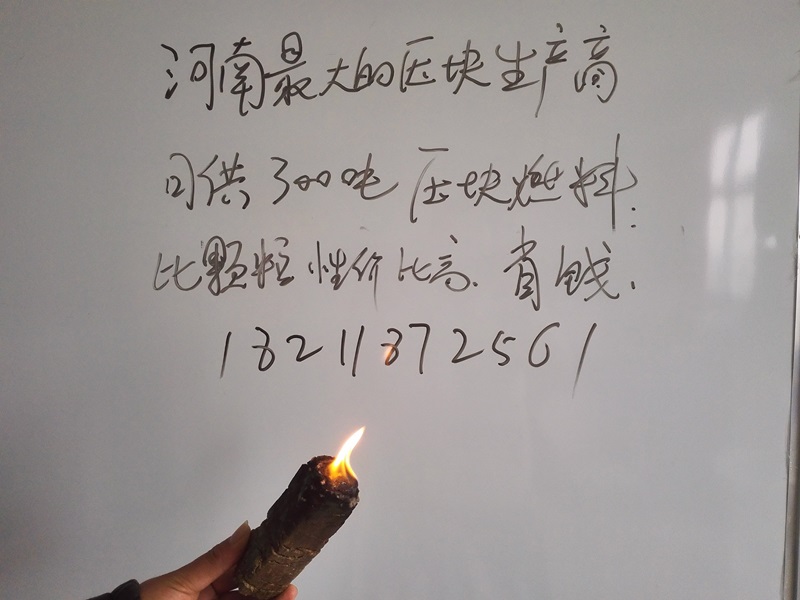 河南最大的压块生产商
日供300吨 压块燃料:
比颗粒性价比高.省钱.
18211872561